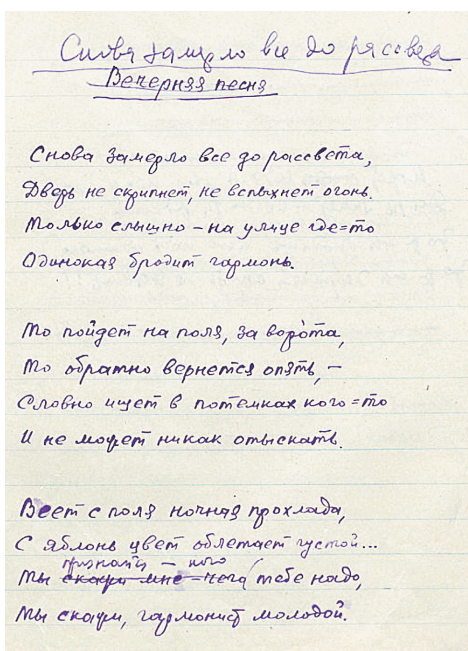 Снова замерло все до рассвета
Вечерняя песня
Снова замерло все до рассвета,
Дверь не скрипнет, не вспыхнет огонь.
Только слышно – на улице где=то
Одинокая бродит гармонь.
То пойдет на поля, за ворота,
То обратно вернется опять, –
Словно ищет в потемках кого=то
И не может никак отыскать.
Веет с поля ночная прохлада,
С яблонь цвет облетает густой...
признайся – кого
Ты скажи мне – чего тебе надо,
Ты скажи, гармонист молодой.